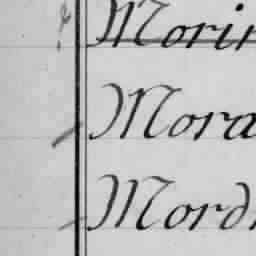 Morin
Mora
Mord